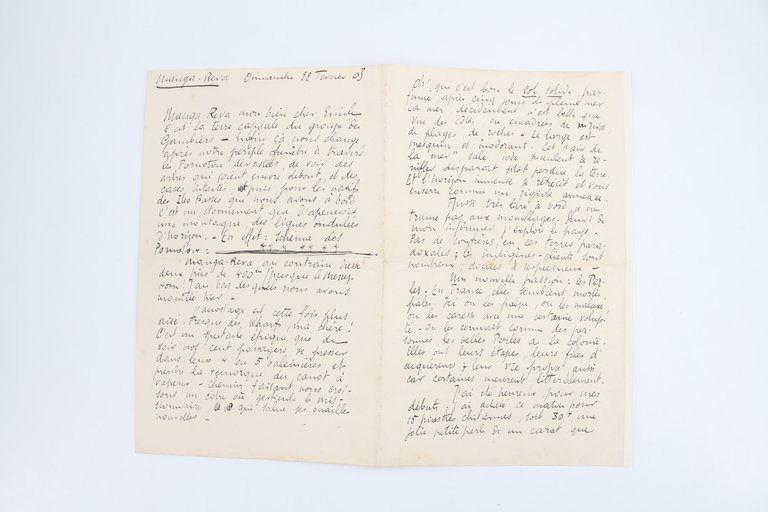 Manga-Reva Dimanche 22 Fevrier 03
Manga-Reva mon bien cher Emile
C'est la terre capitale du groupe des
Gambiers — Enfin ça nous change
après notre périple funèbre à travers
les Pomotou dévastées, de voir des
arbres qui soient encore debout, et des
cases intactes. Et puis pour les natifs
des Iles Basses que nous avons à bord
c'est un étonnement que d'apercevoir
une montagne, des lignes ondulées
d'horizon. — En effet : Schema des
Pomotou :
Manga-Reva au contraire dresse
deux pics de 400m (presque le Mesny-
Hom!) au bas desquels nous avons
mouillé hier —
L'accostage est cette fois plus
aisé. Presque des Wharfs, ma chère!
C'est un spectacle épique que de
voir nos cent passagers se presser
dans leurs 4 ou 5 baleinières et
prendre la remorque du canot à
vapeur — Chemin faisant nous croi-
sons un cotre où gesticule le mis-
sionnaire qui salue ses ouailles
nouvelles —
Oh! que c'est bon le sol solide, par-
fumé, après cinq jours de pleine mer.
La mer décidément n'est belle que
vue des côtes, ou encadrée de
de plages, de roches — Le large est
mesquin et inodorant. Cet "air de
la mer" salé iodé succulent à re-
nifler disparaît sitôt perdue la terre.
Et l'horizon immense se rétrécit et vous
enserre comme un rigide anneau.
Aussi très libre à bord, je ne
traîne pas aux mouillages. Suivi de
mon infirmier j'explore le pays.
Pas de confrères, en ces terres para-
doxales ; les indigènes-clients sont
nombreux, dociles & respectueux —
Une nouvelle passion : les Per-
les — En France elles semblent mortes,
pâles. Ici on les palpe, on les malaxe
on les caresse avec une certaine volup-
té — On les connait comme des per-
sonnes les belles Perles de la colonie.
Elles ont leurs étapes, leurs files d'
acquéreurs & leur vie propre aussi
car certaines meurent littéralement.
J'ai été heureux pour mes
débuts : j'ai acheté ce matin pour
15 piastres chiliennes, soit 30f une
jolie petite perle de un carat que